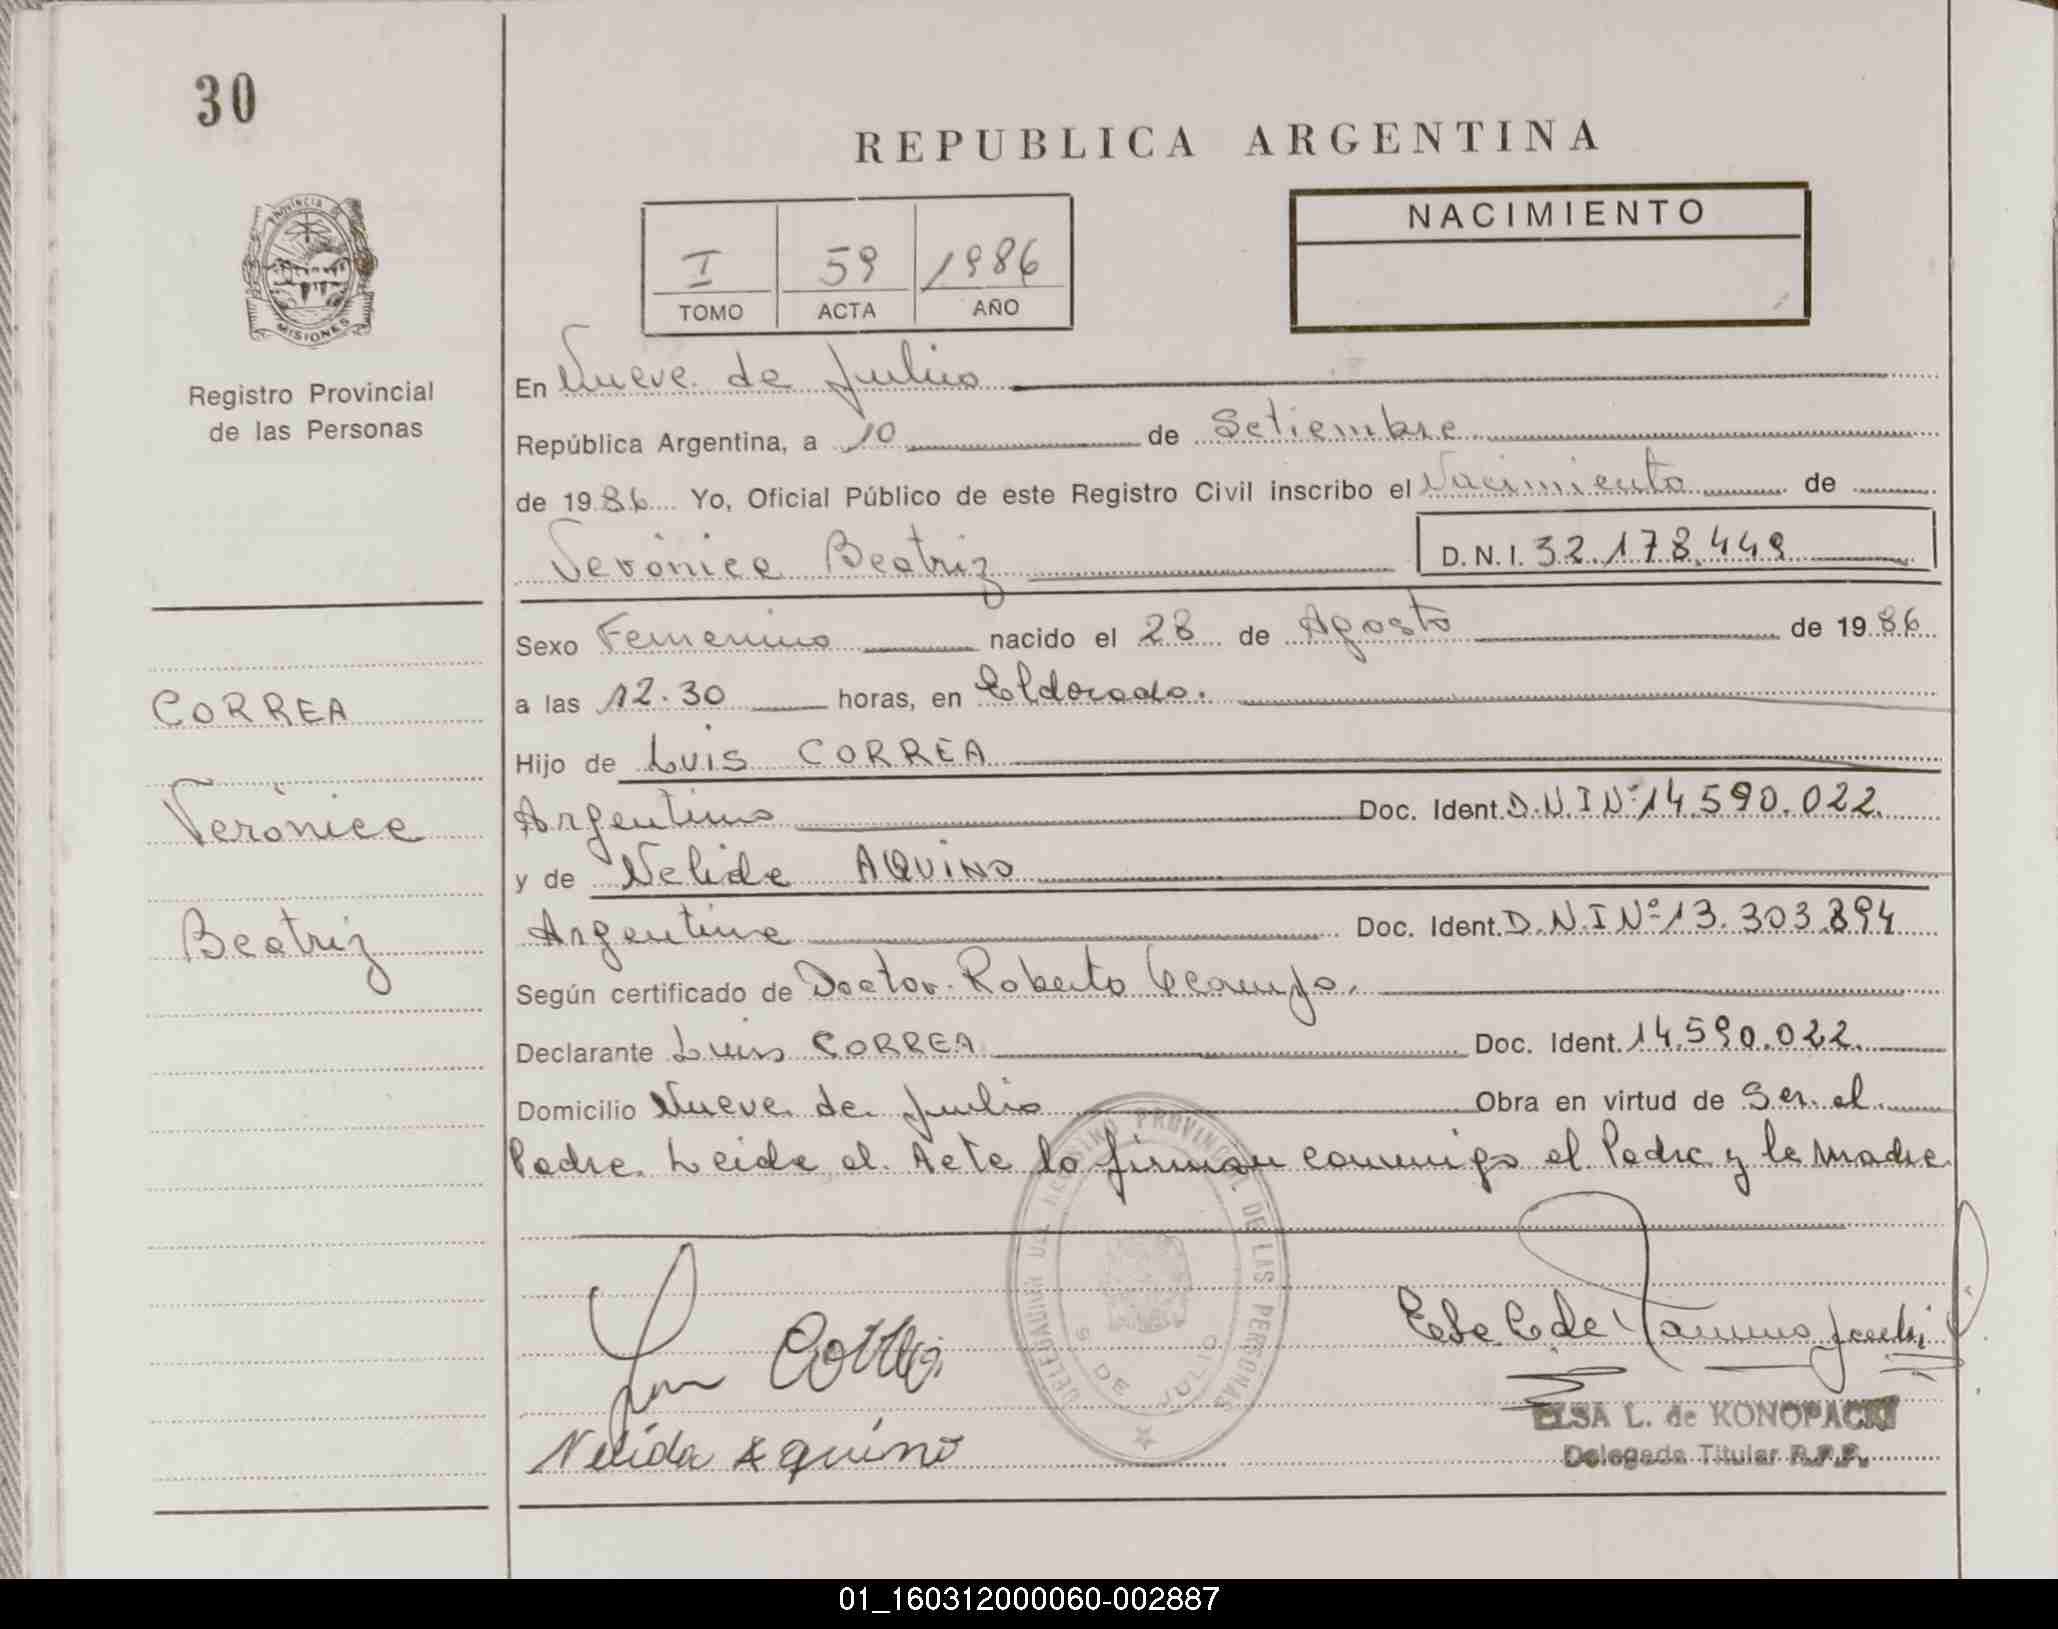 30
REPUBLICA ARGENTINA
NACIMIENTO
I 59 1986
TOMO ACTA AÑO
PROVINCIA DE
MISIONES
Registro Provincial
de las Personas
En Nueve de Julio
República Argentina, a 10 de Setiembre
de 1986 Yo, Oficial Público de este Registro Civil inscribo el Nacimiento de
Verónica Beatriz D.N.I. 32.178.449
Sexo Femenino nacido el 28 de Agosto de 1986
a las 12.30 horas, en Eldorado.
CORREA
Hijo de Luis CORREA
Verónica
Argentino Doc. Ident. D.N.I Nº 14.590.022.
y de Nelida AQUINO
Beatriz
Argentina Doc. Ident. D.N.I Nº 13.303.894
Según certificado de Doctor Roberto Ocampo.
Declarante Luis CORREA Doc. Ident. 14.590.022.
Domicilio Nueve de Julio Obra en virtud de Ser el
Padre. Leida el Acta la firman conmigo el Padre y la Madre
DELEGACION DEL REGISTRO PROVINCIAL DE LAS PERSONAS
9 DE JULIO
Luis Correa
Nelida Aquino
ELSA L. de KONOPACKI
Delegada Titular R.P.P.
01_160312000060-002887